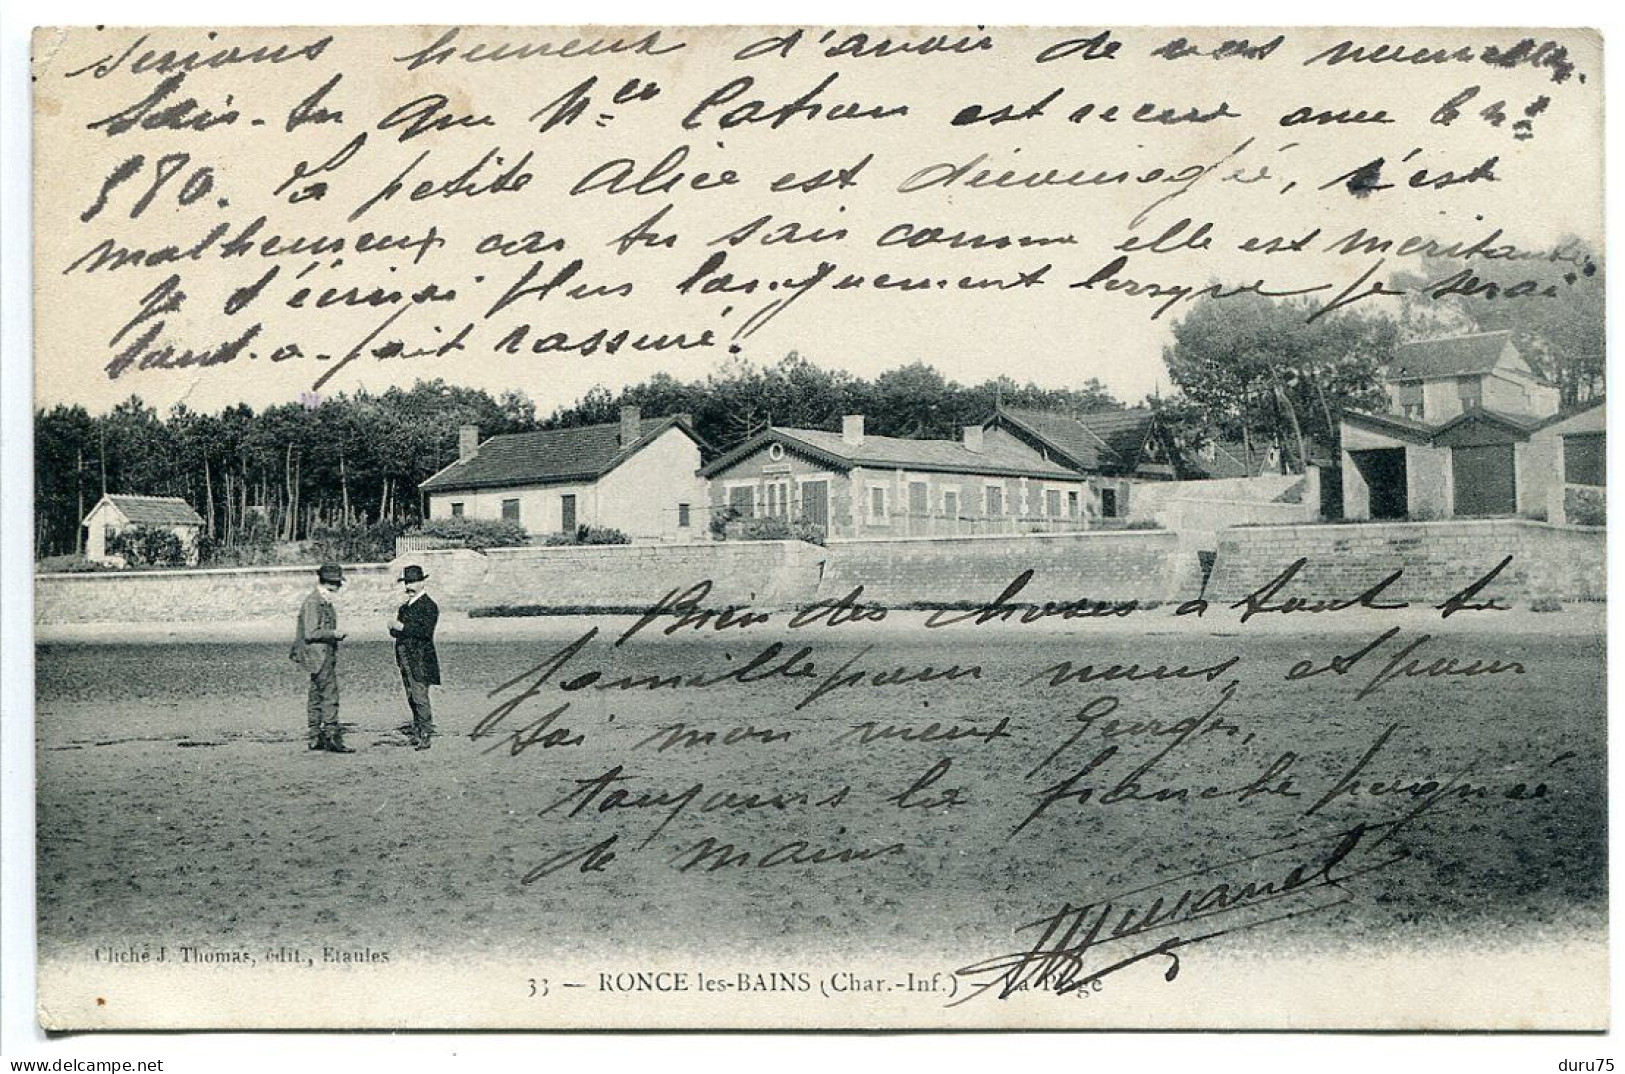 serions heureux d'avoir de vos nouvelles.
Sais-tu que Mlle Catrou est recue avec le no
580. La petite Alice est découragée, c'est
malheureux car tu sais comme elle est méritante
je t'écrirai plus longuement lorsque je serai
tout-a-fait rassuré.
Bien des choses a tout ta
famille pour nous, et pour
toi mon vieux Georges,
toujours la franche poignée
de mains
Cliché J. Thomas, édit., Etaules
33 — RONCE les-BAINS (Char.-Inf.) — La Plage
duru75